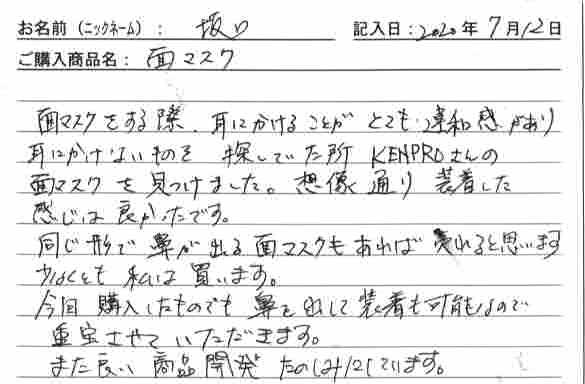 お名前（ニックネーム）： 坂口 記入日：2020年7月12日
ご購入商品名： 面マスク
面マスクをする際、耳にかけることが とても違和感があり
耳にかけないものを 探していた所 KENPROさんの
面マスクを見つけました。想像通り 装着した
感じは良かったです。
同じ形で鼻が出る面マスクもあれば売れると思います
少なくとも私は買います。
今回購入したものでも鼻を出して装着も可能なので
重宝させていただきます。
また良い商品開発たのしみにしています。